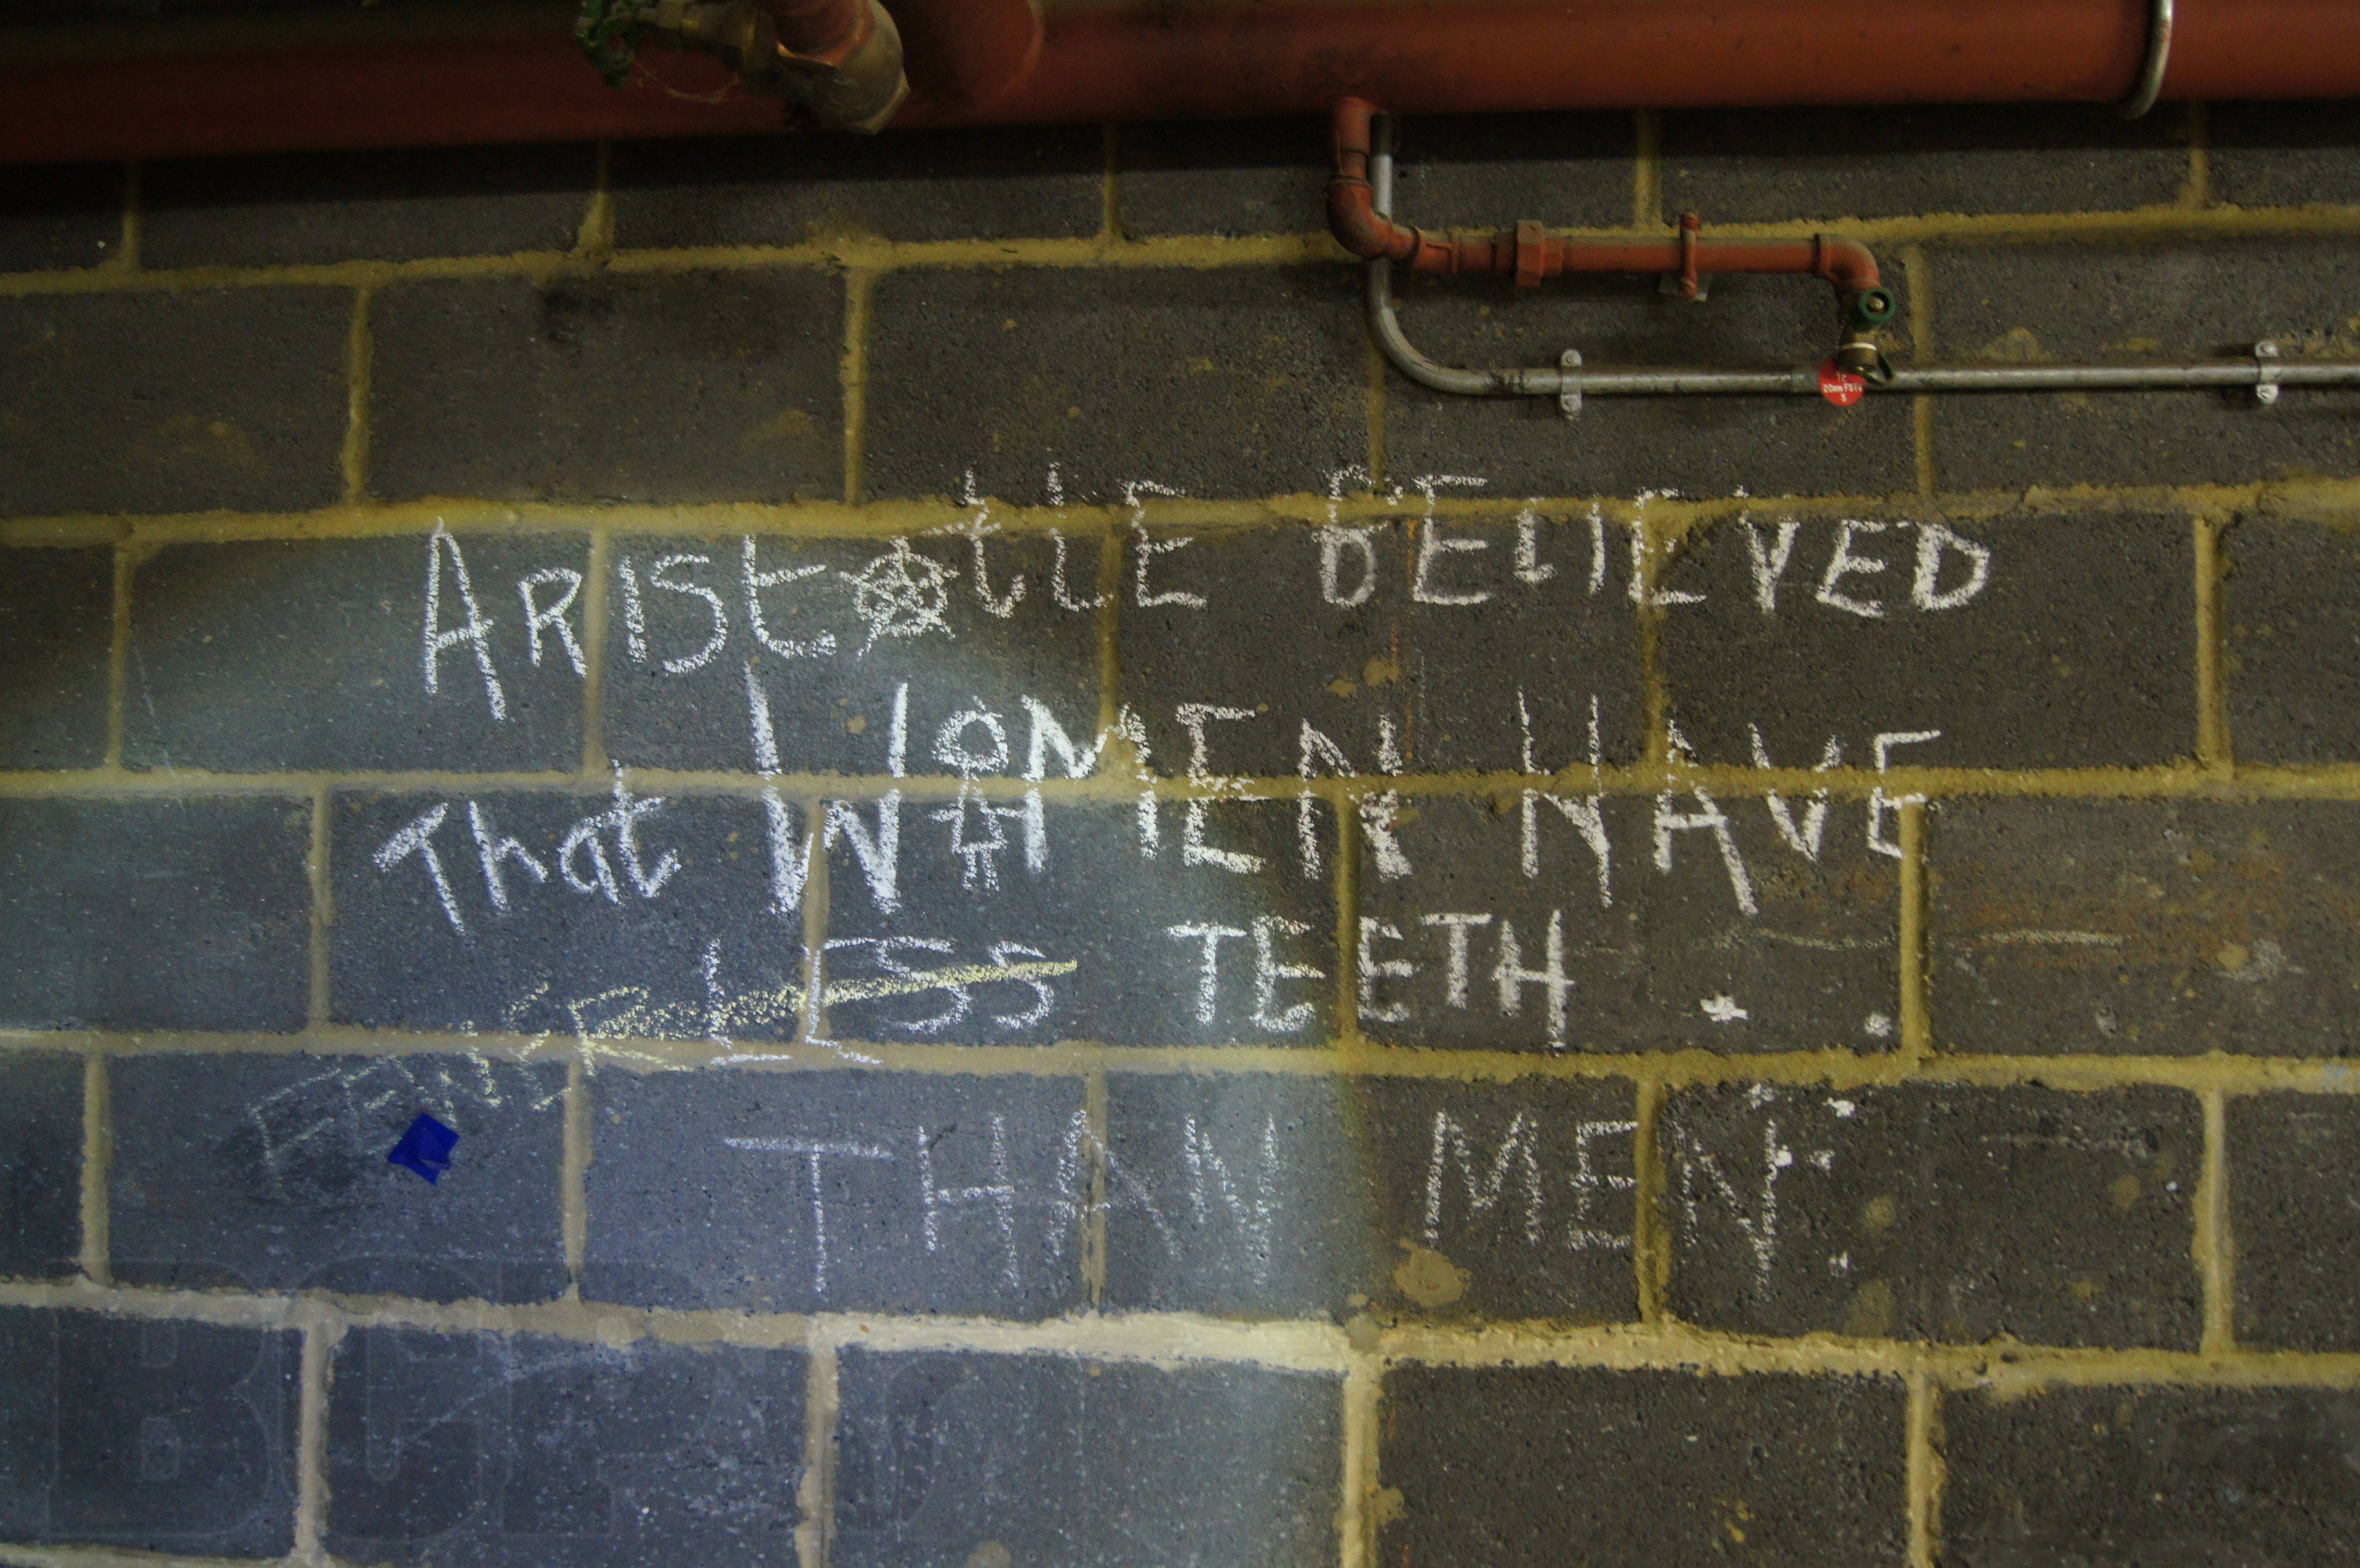 ARIStOtlE BElIEVED
That WOMEN HAVE
FEWER LESS TEETH..
THAN MEN.